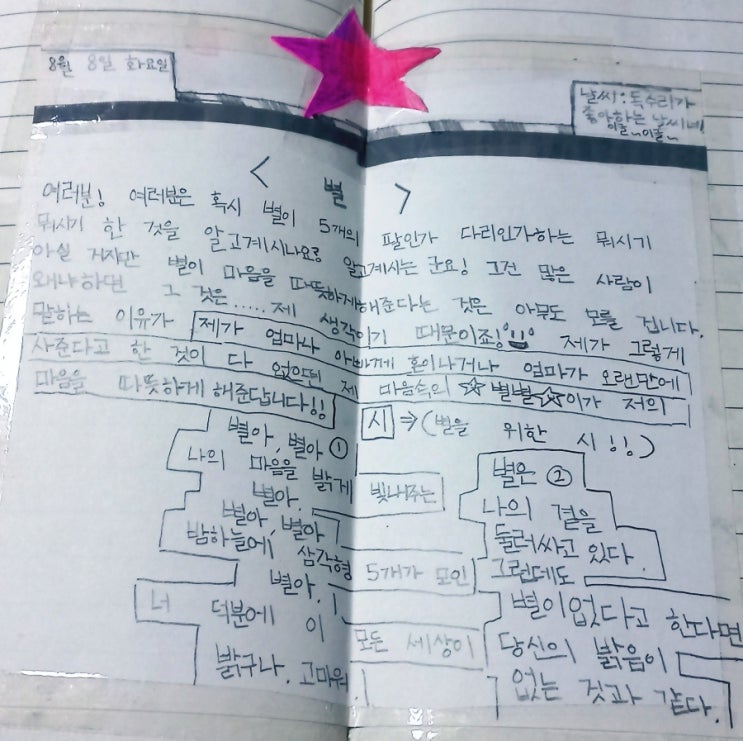 8월 8일 화요일
날씨: 독수리가
좋아하는 날씨네!
이훌~이훌~
< 별 >
여러분! 여러분은 혹시 별이 5개의 팔인가 다리인가하는 뭐시기
뭐시기 한 것을 알고계시나요? 알고계시는 군요! 그건 많은 사람이
아실 거지만 별이 마음을 따뜻하게해준다는 것은 아무도 모를 겁니다.
왜냐하면 그 것은...... 제 생각이기 때문이죠! 제가 그렇게
말하는 이유가 제가 엄마나 아빠께 혼이나거나 엄마가 오랜만에
사준다고 한 것이 다 없으면 제 마음속의 ☆별별☆이가 저의
마음을 따뜻하게 해준답니다!!
시 ⇒ (별을 위한 시!!)
별아, 별아 ①
나의 마음을 밝게 빛내주는
별아.
별아, 별아
밤하늘에 삼각형 5개가 모인
별아,
너 덕분에 이 모든 세상이
밝구나. 고마워.
별은 ②
나의 곁을
둘러싸고 있다.
그런데도
별이없다고 한다면
당신의 밝음이
없는 것과 같다.